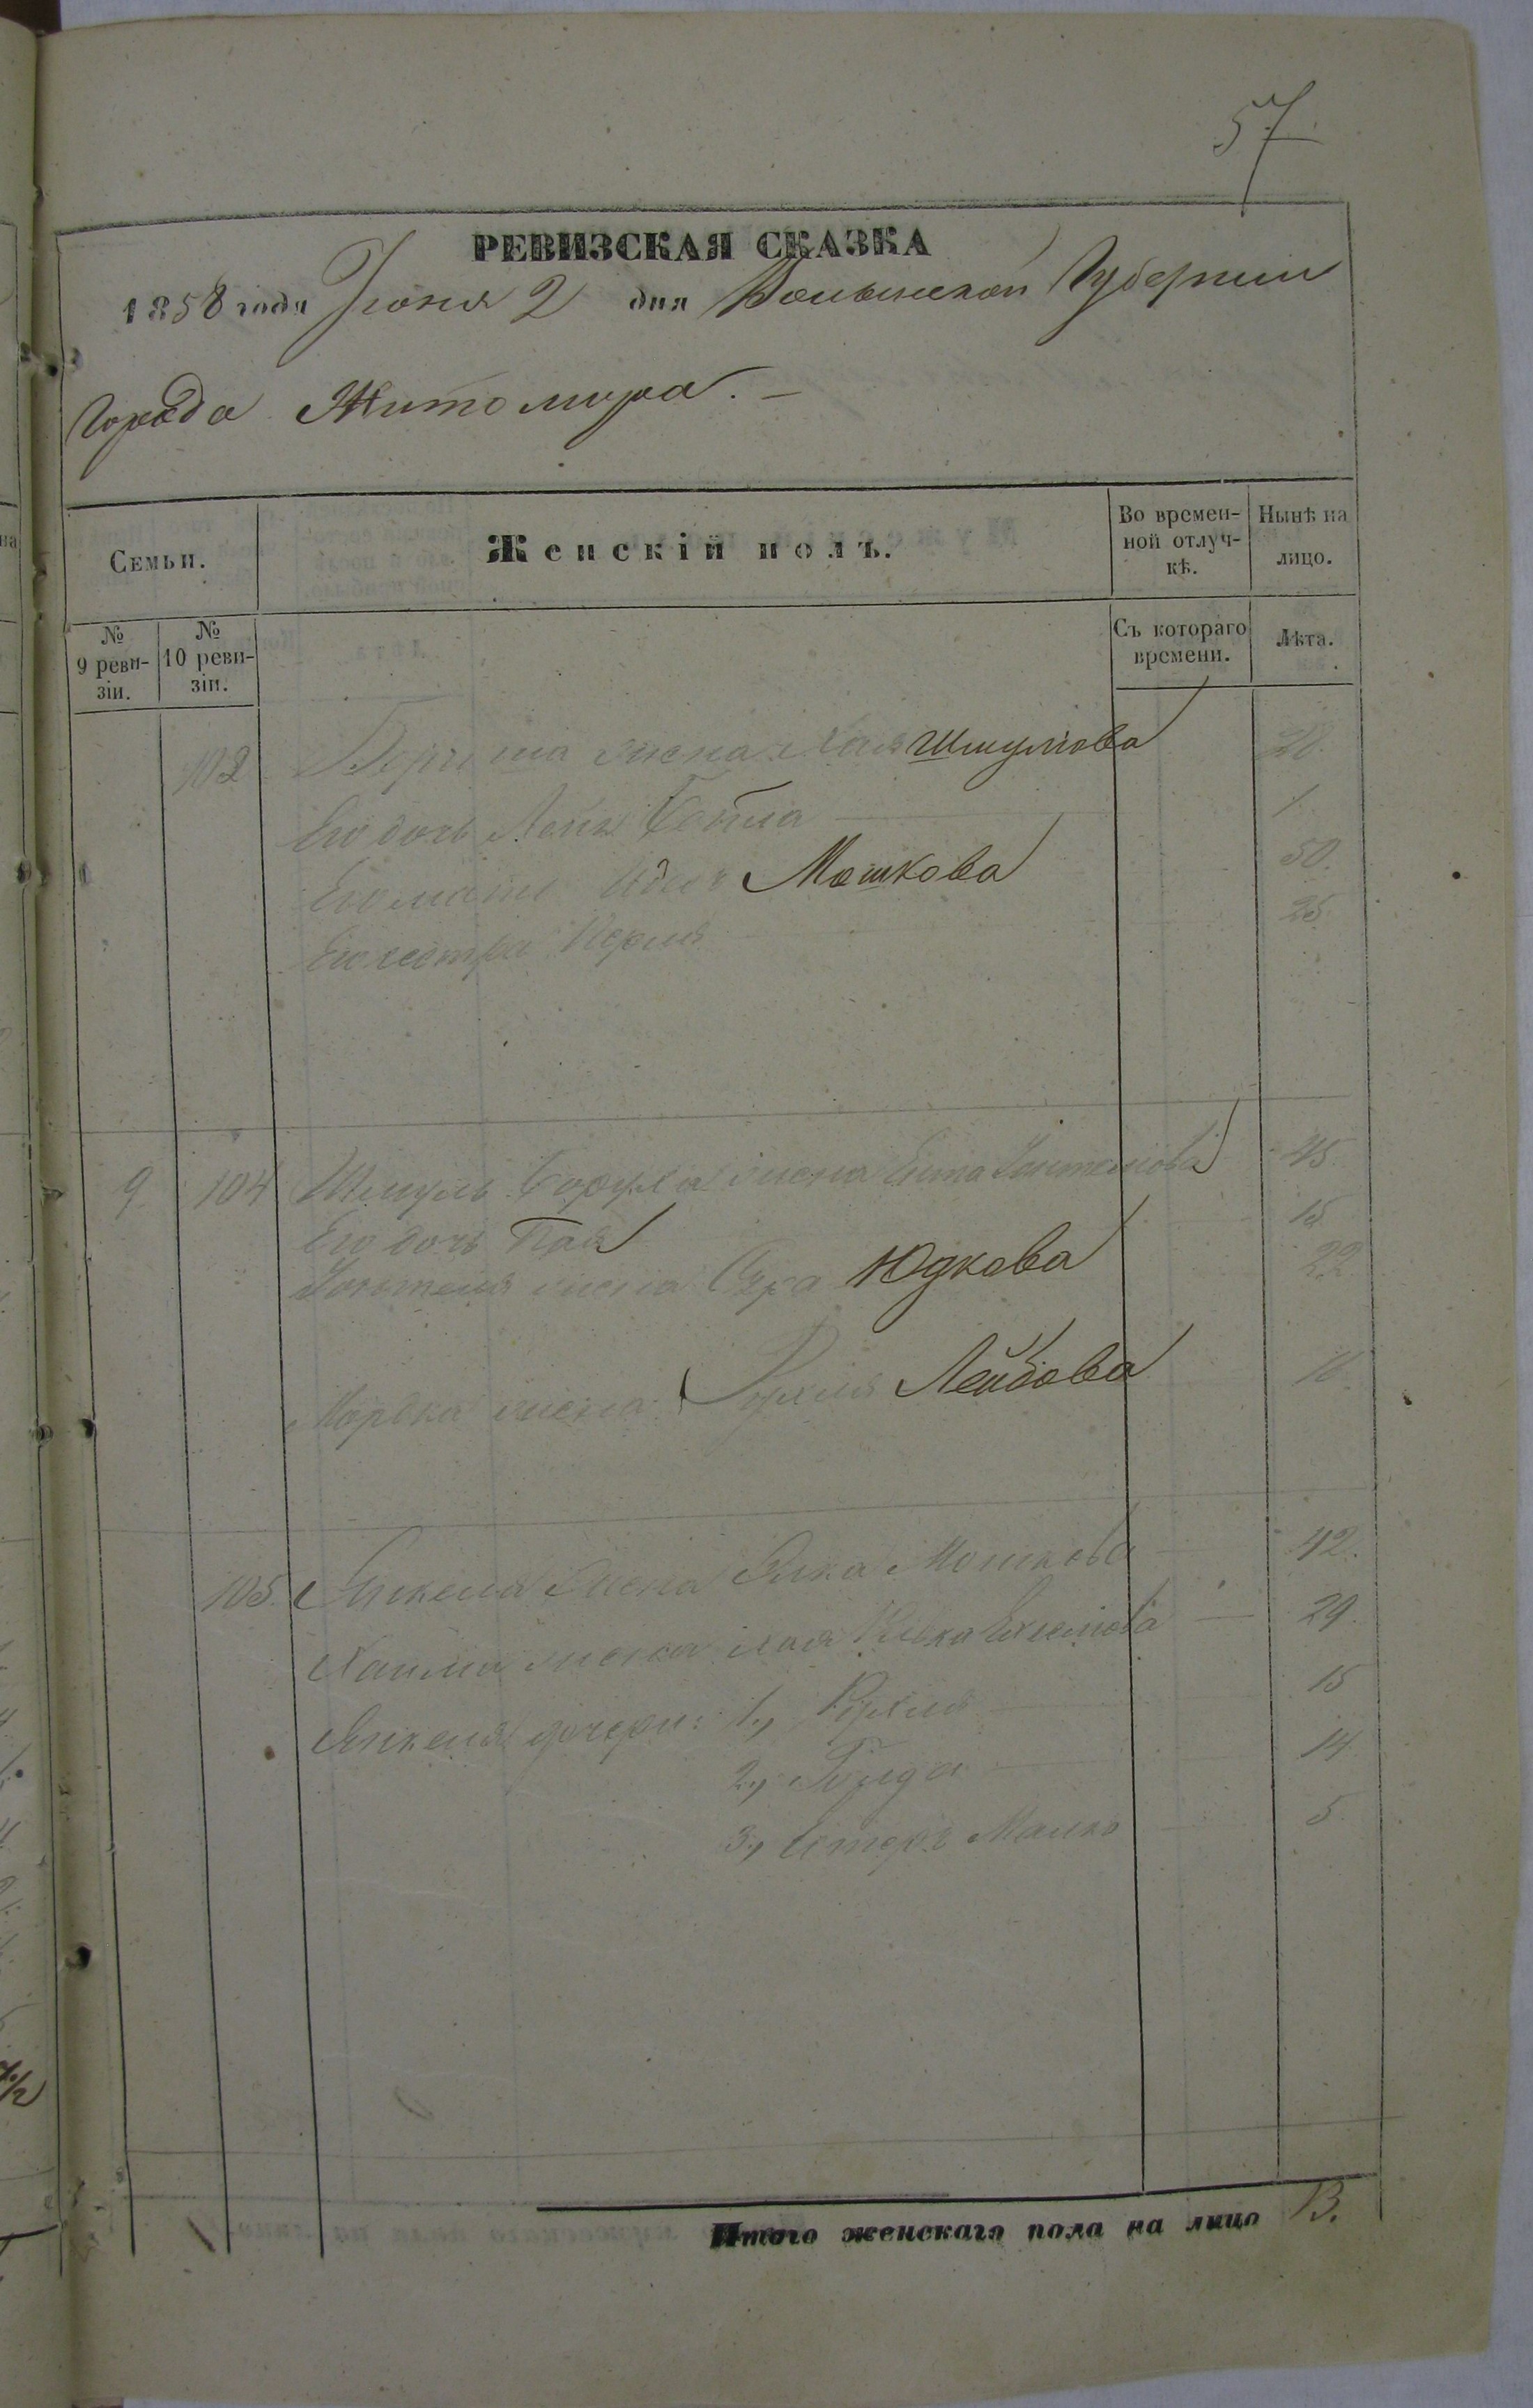 57
РЕВИЗСКАЯ СКАЗКА
1858 года Іюня 2 дня Волынской Губерніи
Города Житомира. —
Семьи.
Женскій полъ.
Во времен-
ной отлуч-
кѣ.
Нынѣ на
лицо.
№
9 реви-
зіи.
№
10 реви-
зіи.
Съ котораго
времени.
Лѣта.
102 жена Хая Шмулiова 28.
Его дочь Бейла 1
Его мать Мошкова 50.
Его сестра Перля 25.
9. 104 Шмуль Боруха жена Ента 45.
Его дочь Пая 15
жена Сура Юдкова 22
Мордка жена Рухля Лейбова 16.
105. Янкеля жена Элка Мошкова 42.
Хаима жена Хая 29.
Янкеля дочери: 1., Рухля 15
2., Голда 14
3., Естеръ Малка 5
Итого женскаго пола на лицо 13.